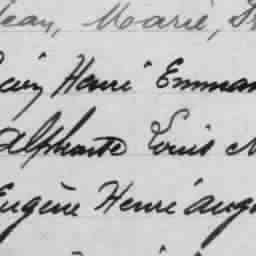 Jean, Marie,
Henri Emman
Alphonse Louis M
Eugène Henri Aug